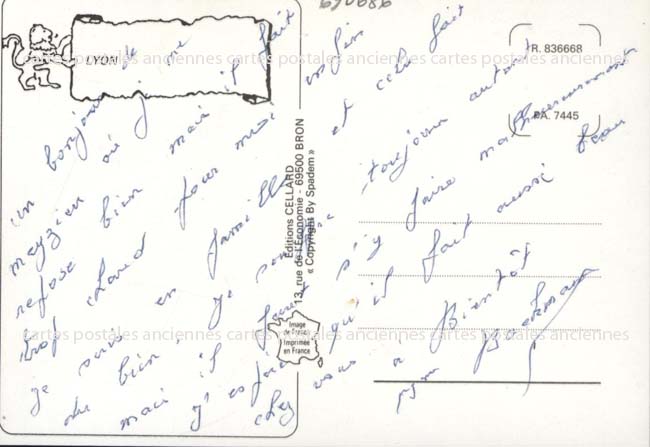 LYON
690686
R. 836668
PA. 7445
un bonjour de
meyzieu où je me
repose bien mais il fait
trop chaud pour moi enfin
je suis en famille et cela fait
du bien. Je toujours autant
mais il faut s'y faire malheureusement
j'espère qu'il fait aussi beau
chez vous a Bientôt
Éditions CELLARD
13, rue de l'Economie - 69500 BRON
« Copyright By Spadem »
Image
de France
Imprimée
en France
cartes postales anciennes cartes postales anciennes cartes postales anciennes cartes postales anciennes
cartes postales anciennes cartes postales anciennes cartes postales anciennes cartes postales anciennes